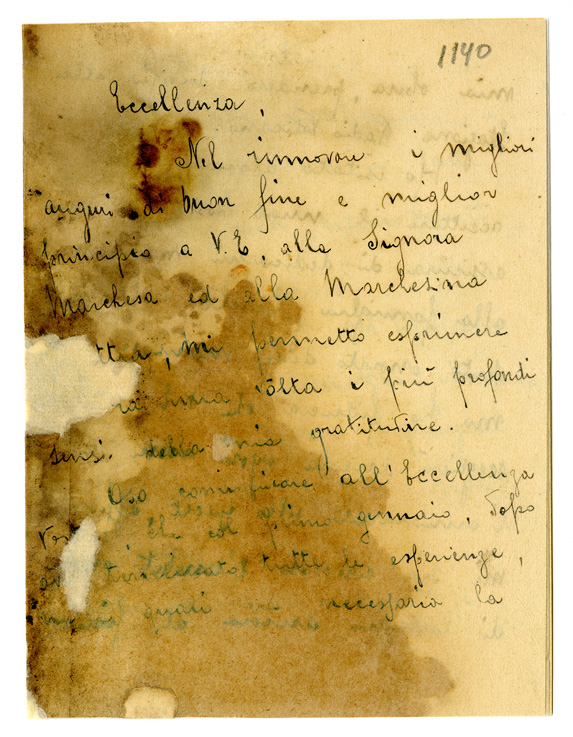 1140
Eccellenza,
Nel rinnovare i migliori
auguri di buon fine e miglior
principio a V.E, alla Signora
Marchesa ed alla Marchesina
tta, mi permetto esprimere
ra una volta i più profondi
sensi della mia gratitudine.
Oso comunicare all'Eccellenza
Vos che col primo gennaio, dopo
tutte le esperienze,
quali era necessaria la